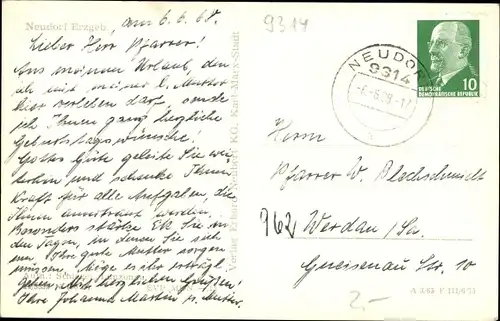 Neudorf Erzgeb.
am 6.6.68.
Lieber Herr Pfarrer!
Aus meinem Urlaub, den
ich mit meiner l. Mutter
hier verleben darf, sende
ich Ihnen ganz herzliche
Geburtstagswünsche!
Gottes Güte geleite Sie wei-
terhin und schenke Ihnen
Kraft für alle Aufgaben, die
Ihnen anvertraut werden.
Besonders stärke ER Sie in
den Tagen, in denen Sie sich
um Ihre gute Mutter sorgen
müssen. Möge es ihr erträgl.
gehen. Mit herzlichen Grüßen!
Ihre Johanna Martin u. Mutter.
Verlag Erhard Neubert KG, Karl-Marx-Stadt
9314
NEUDORF
9314
-6.-6.68.-17
a
DEUTSCHE
DEMOKRATISCHE REPUBLIK
10
Herrn
Pfarrer W. Blechschmidt
962 Werdau/Sa.
Gneisenau Str. 10
2.-
A 3/65 P III/6/73